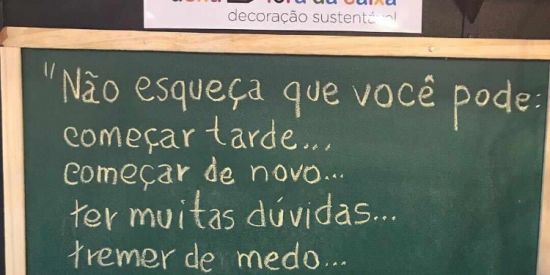 fora da caixa
decoração sustentável
"Não esqueça que você pode:
começar tarde...
começar de novo...
ter muitas dúvidas...
tremer de medo...